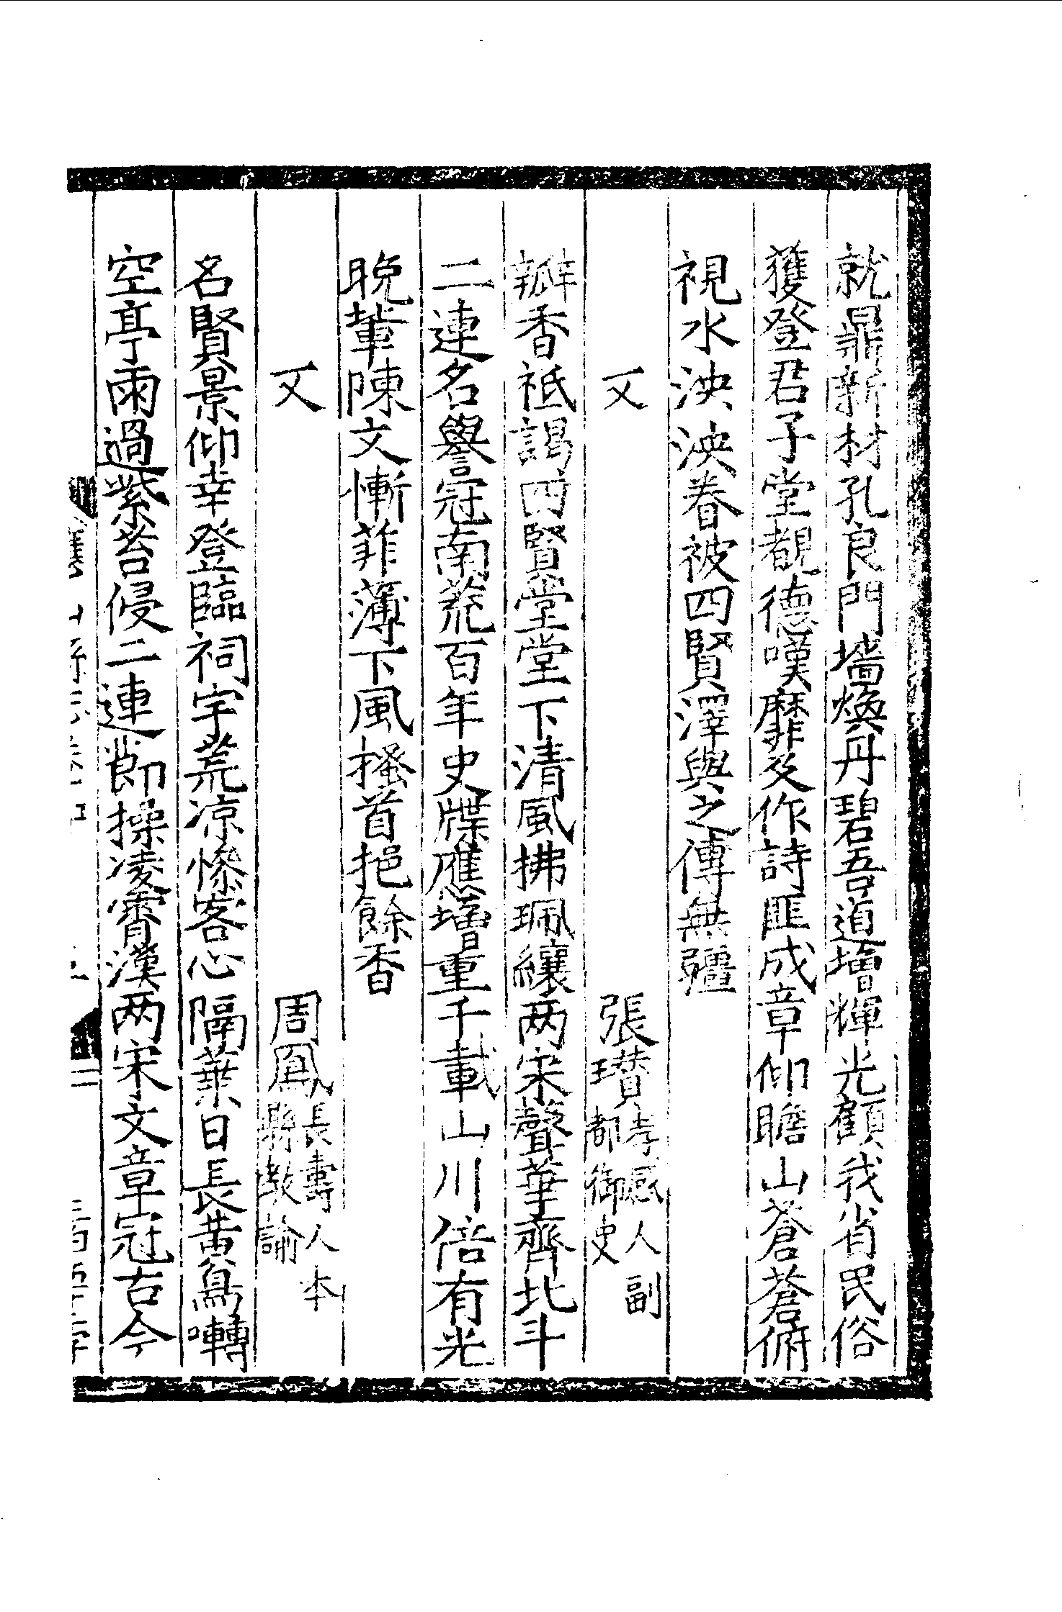 就鼎新材孔良門墻煥丹碧吾道增輝光顧我省民俗
獲登君子堂覩德嘆靡及作詩匪成章仰瞻山蒼蒼俯
視水泱泱眷被四賢澤與之傳無疆
又 張瓚孝感人副都御史
瓣香祗謁四賢堂堂下清風拂珮纕两宋聲華齊北斗
二連名譽冠南荒百年史牒應增重千載山川倍有光
晚輩陳文慚菲薄下風搔首挹餘香
又 周鳳長壽人本縣教諭
名賢景仰幸登臨祠宇荒凉慘客心隔葉日長黄鳥囀
空亭雨過紫苔侵二連節操凌霄漢两宋文章冠古今